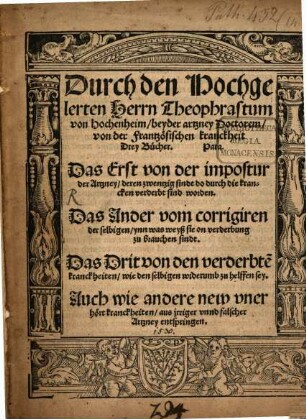 Path. 432
Durch den Hochge
lerten Herrn Theophrastum
von Hochenheim / beyder artzney Doctorem /
von der Frantzösischen kranckheit
Drey Bücher. Para.
MEDIA
MONACENSIS
Das Erst von der impostur
der Artzney / deren zwentzig sindt do durch die kran-
cken verderbt sind worden.
R
Das Ander vom corrigiren
der selbigen / ynn was weyß sie on verderbung
zu brauchen sindt.
Das Drit von den verderbtẽ
kranckheiten / wie den selbigen widerumb zu helffen sey.
Auch wie andere new vner
hört kranckheiten / aus jrriger vnnd falscher
Artzney entspringen.
1530.